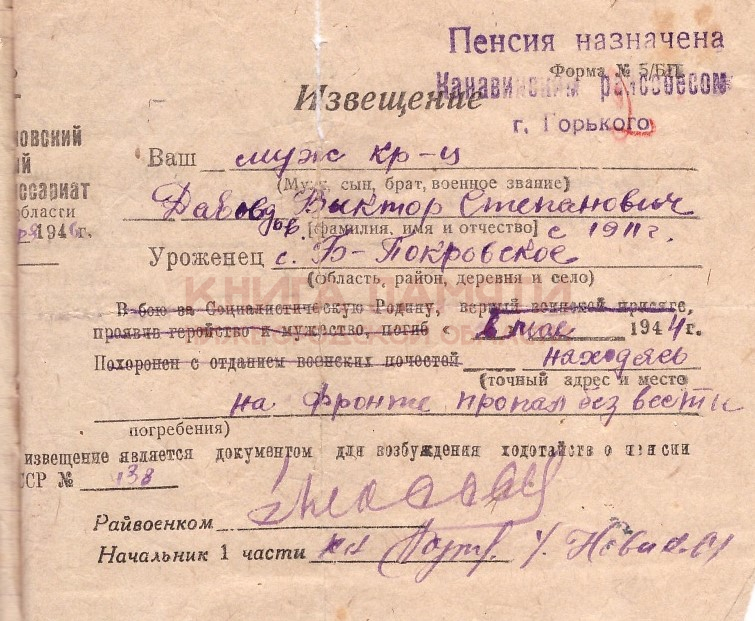 Пенсия назначена
Форма № 5/БП
Канавинским райсобесом
Извещение
г. Горького
новский
ий
ссариат
области
1946г.
Ваш муж кр-ц
(Муж, сын, брат, военное звание)
Давыдов Виктор Степанович
дов
[фамилия, имя и отчество) с 1911г.
Уроженец с. Б-Покровское
(область, район, деревня и село)
КНИГА ПАМЯТИ
В бою за Социалистическую Родину, верный воинской присяге,
проявив геройство и мужество, погиб в мае 1944г.
Похоронен с отданием воинских почестей находясь
(точный адрес и место
на фронте пропал без вести
погребения)
извещение является документом для возбуждения ходотайств о пенсии
ССР № 138
Райвоенком
Начальник 1 части